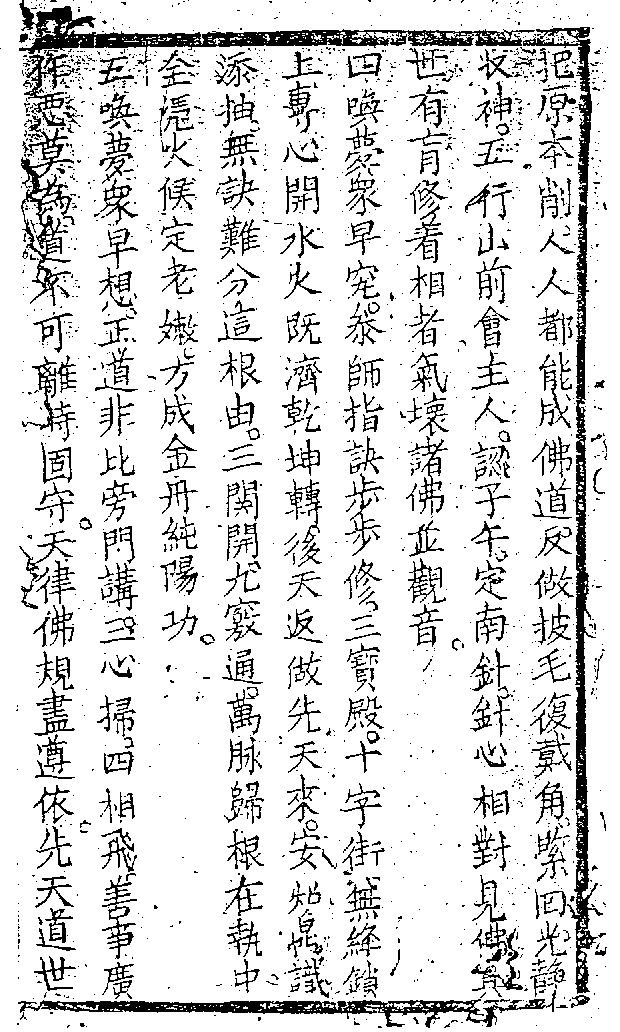 把原本削人人都能成佛道反做披毛復戴角緊回光靜
收神。五行山前會主人。認子午。定南針。針心相對見佛真
世有盲修着相者氣壞諸佛並觀音。
四喚夢衆早究。參師指訣步步修。三寶殿。十字街無縫鎖
上專心開水火既濟乾坤轉。後天返做先天來。安知識
添抽。無訣難分這根由。三関開。九竅通。萬脉歸根在執中
全憑火候定老嫩。方成金丹純陽功。
五喚夢衆早想。正道非比旁門講。三心掃。四相飛善事廣
作惡莫為道不可離特固守。天律佛規盡遵依。先天道世